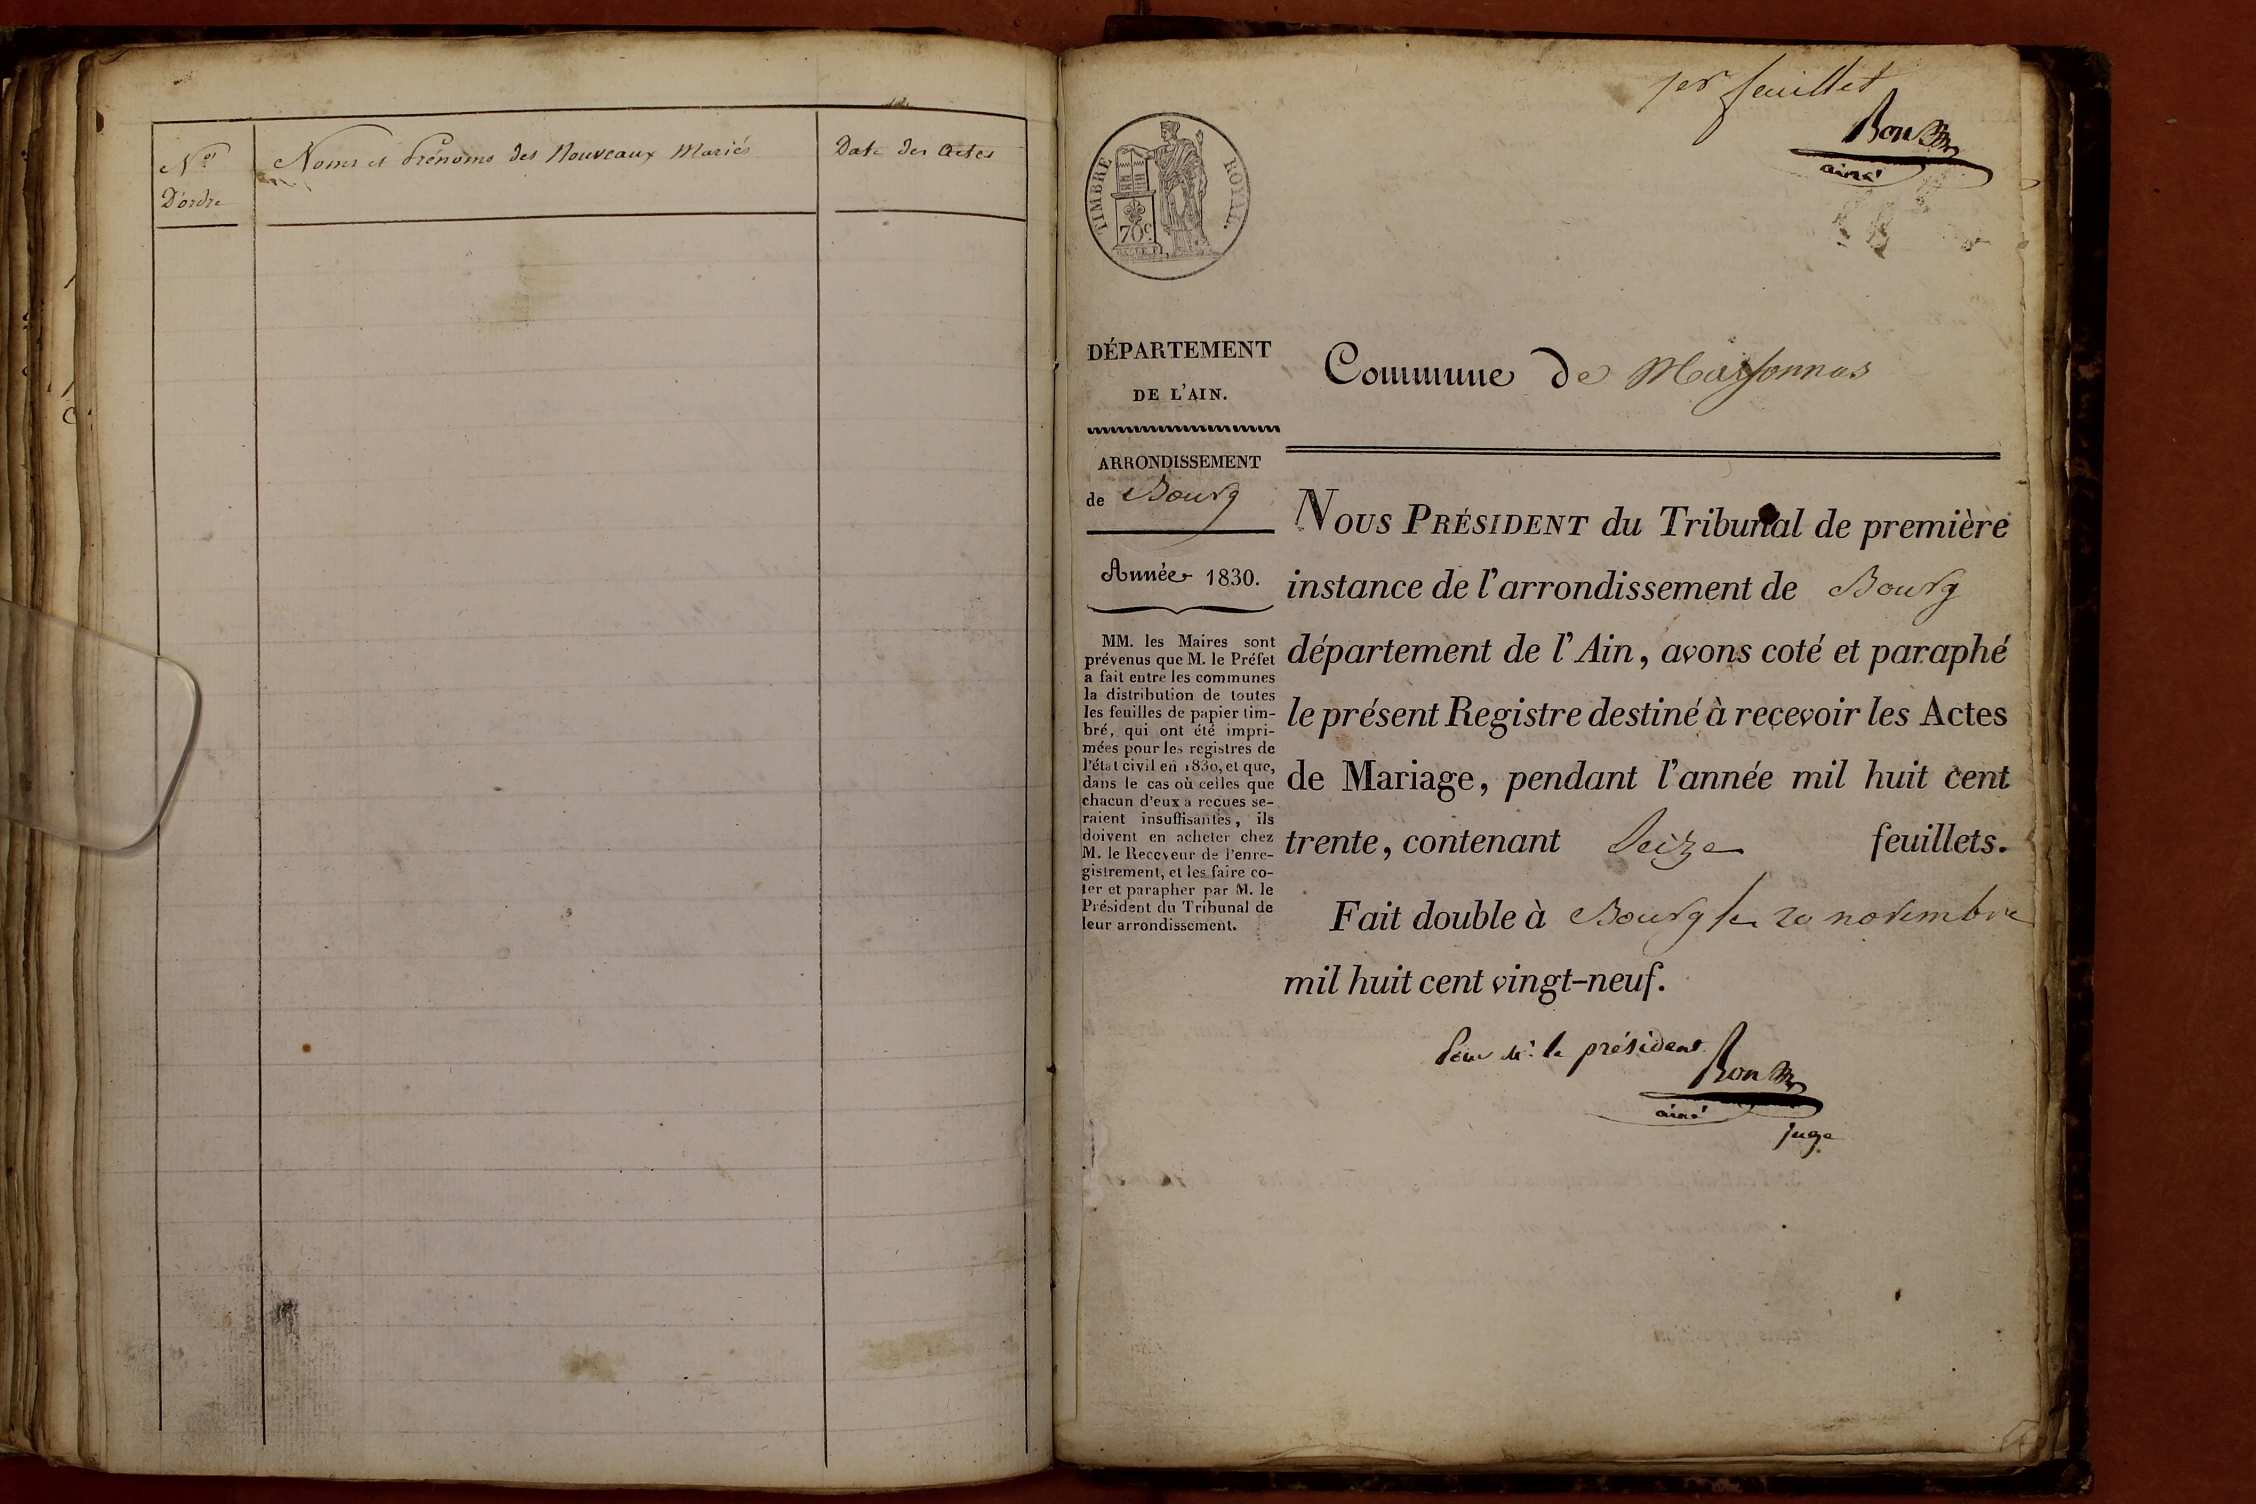 Nos
D'ordre
Noms et Prénoms des Nouveaux Mariés
Date des Actes
1er feuillet
ainé
TIMBRE ROYAL.
70c.
DÉPARTEMENT
DE L'AIN.
ARRONDISSEMENT
de Bourg
Année 1830.
MM. les Maires sont
prévenus que M. le Préfet
a fait entre les communes
la distribution de toutes
les feuilles de papier tim-
bré, qui ont été impri-
mées pour les registres de
l'état civil en 1830, et que,
dans le cas où celles que
chacun d'eux a reçues se-
raient insuffisantes, ils
doivent en acheter chez
M. le Receveur de l'enre-
gistrement, et les faire co-
ter et parapher par M. le
Président du Tribunal de
leur arrondissement.
Commune de Marsonnas
NOUS PRÉSIDENT du Tribunal de première
instance de l'arrondissement de Bourg
département de l'Ain, avons coté et paraphé
le présent Registre destiné à recevoir les Actes
de Mariage, pendant l'année mil huit cent
trente, contenant Seize feuillets.
Fait double à Bourg le 20 novembre
mil huit cent vingt-neuf.
Pour Mr. le président
ainé
juge